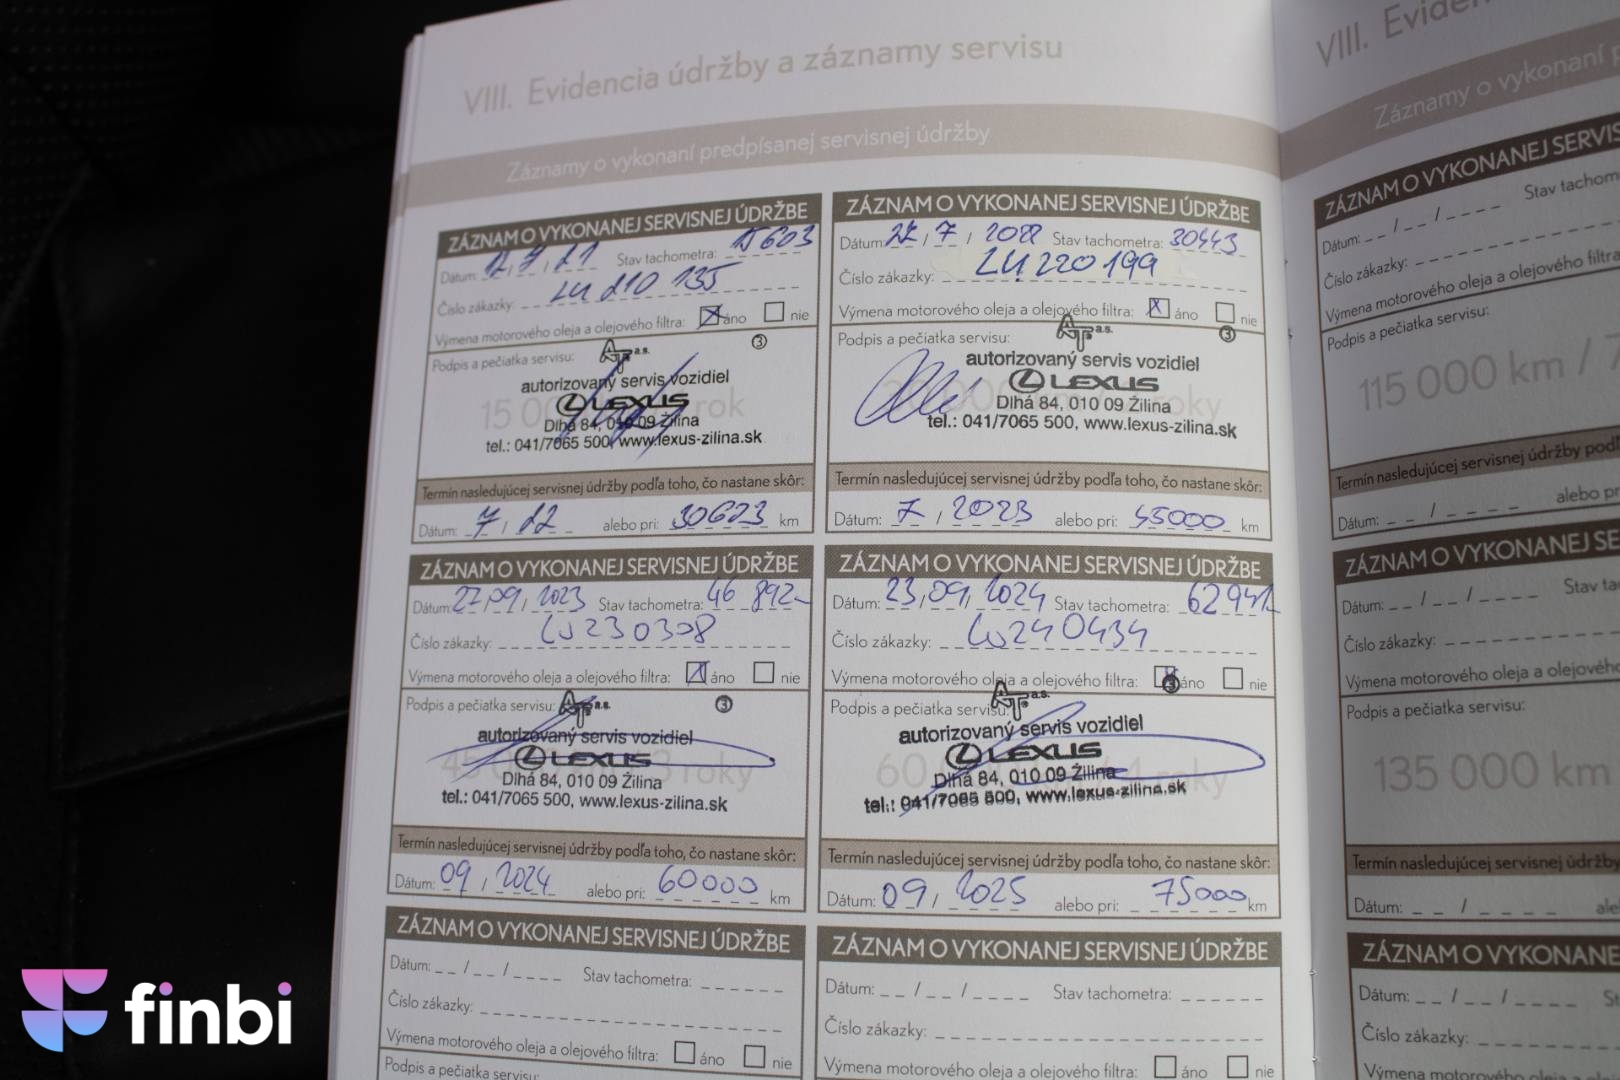 VIII. Evidencia údržby a záznamy servisu
Záznamy o vykonaní predpísanej servisnej údržby
ZÁZNAM O VYKONANEJ SERVISNEJ ÚDRŽBE
Dátum: 12, 7, 21 Stav tachometra: 15603
Číslo zákazky: LU 210 135
Výmena motorového oleja a olejového filtra: áno nie
Podpis a pečiatka servisu: AT a.s. 3
autorizovaný servis vozidiel
LEXUS
Dlhá 84, 010 09 Žilina
tel.: 041/7065 500, www.lexus-zilina.sk
Termín nasledujúcej servisnej údržby podľa toho, čo nastane skôr:
Dátum: 7 / 22 alebo pri: 30623 km
ZÁZNAM O VYKONANEJ SERVISNEJ ÚDRŽBE
Dátum: 22 / 7 / 2022 Stav tachometra: 30443
Číslo zákazky: LU 220 199
Výmena motorového oleja a olejového filtra: áno nie
Podpis a pečiatka servisu: AT a.s. 3
autorizovaný servis vozidiel
LEXUS
Dlhá 84, 010 09 Žilina
tel.: 041/7065 500, www.lexus-zilina.sk
Termín nasledujúcej servisnej údržby podľa toho, čo nastane skôr:
Dátum: 7 / 2023 alebo pri: 45000 km
ZÁZNAM O VYKONANEJ SERVISNEJ ÚDRŽBE
Dátum: 27/09/2023 Stav tachometra: 46 892
Číslo zákazky: LU230308
Výmena motorového oleja a olejového filtra: áno nie
Podpis a pečiatka servisu: AT a.s. 3
autorizovaný servis vozidiel
LEXUS
45 000 km / 3 roky
Dlhá 84, 010 09 Žilina
tel.: 041/7065 500, www.lexus-zilina.sk
Termín nasledujúcej servisnej údržby podľa toho, čo nastane skôr:
Dátum: 09 / 2024 alebo pri: 60000 km
ZÁZNAM O VYKONANEJ SERVISNEJ ÚDRŽBE
Dátum: 23/09/2024 Stav tachometra: 62941
Číslo zákazky: LU240434
Výmena motorového oleja a olejového filtra: áno nie
3
Podpis a pečiatka servisu: AT a.s.
autorizovaný servis vozidiel
LEXUS
Dlhá 84, 010 09 Žilina
tel.: 041/7065 500, www.lexus-zilina.sk
Termín nasledujúcej servisnej údržby podľa toho, čo nastane skôr:
Dátum: 09 / 2025 alebo pri: 75000 km
ZÁZNAM O VYKONANEJ SERVISNEJ ÚDRŽBE
Dátum: / / Stav tachometra:
Číslo zákazky:
Výmena motorového oleja a olejového filtra: áno nie
Podpis a pečiatka servisu:
ZÁZNAM O VYKONANEJ SERVISNEJ ÚDRŽBE
Dátum: / / Stav tachometra:
Číslo zákazky:
Výmena motorového oleja a olejového filtra: áno nie
VIII.
Záznamy o vykonaní
ZÁZNAM O VYKONANEJ
Dátum: / / Stav
Číslo zákazky:
Výmena motorového oleja a olejového
Podpis a pečiatka servisu:
115 000 km /
Termín nasledujúcej servisnej údržby
Dátum: / alebo
ZÁZNAM O VYKONANEJ
Dátum: / / Stav
Číslo zákazky:
Výmena motorového oleja a olejového
Podpis a pečiatka servisu:
135 000 km
Termín nasledujúcej servisnej údržby
Dátum: /
ZÁZNAM O VYKONANEJ
Dátum: / /
Číslo zákazky:
Výmena motorového oleja a
finbi